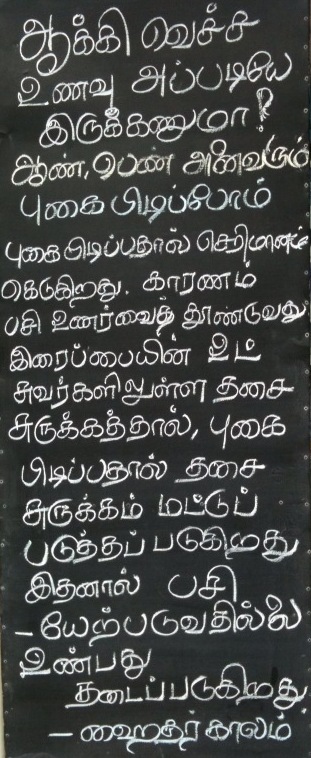 ஆக்கி வெச்ச
உணவு அப்படியே
இருக்கணுமா?
ஆண், பெண் அனைவரும்
புகை பிடிப்போம்
புகை பிடிப்பதால் செரிமானம்
கெடுகிறது. காரணம்
பசி உணர்வைத் தூண்டுவது
இரைப்பையின் உட்
சுவர்களிலுள்ள தசை
சுருக்கத்தால், புகை
பிடிப்பதால் தசை
சுருக்கம் மட்டுப்
படுத்தப் படுகிறது
இதனால் பசி
- யேற்படுவதில்லை
உண்பது
தடைப்படுகிறது.
- ஹைதர் காலம்